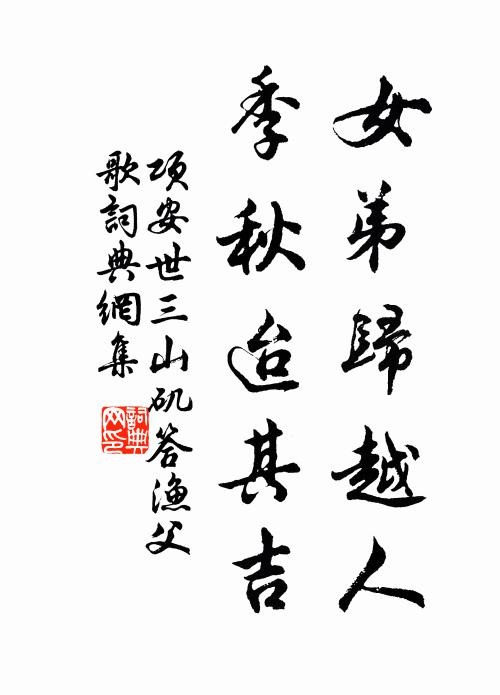 女弟歸越人
季秋迨其吉
項安世三山矶答漁父
歌詞典網集
詞典
网印